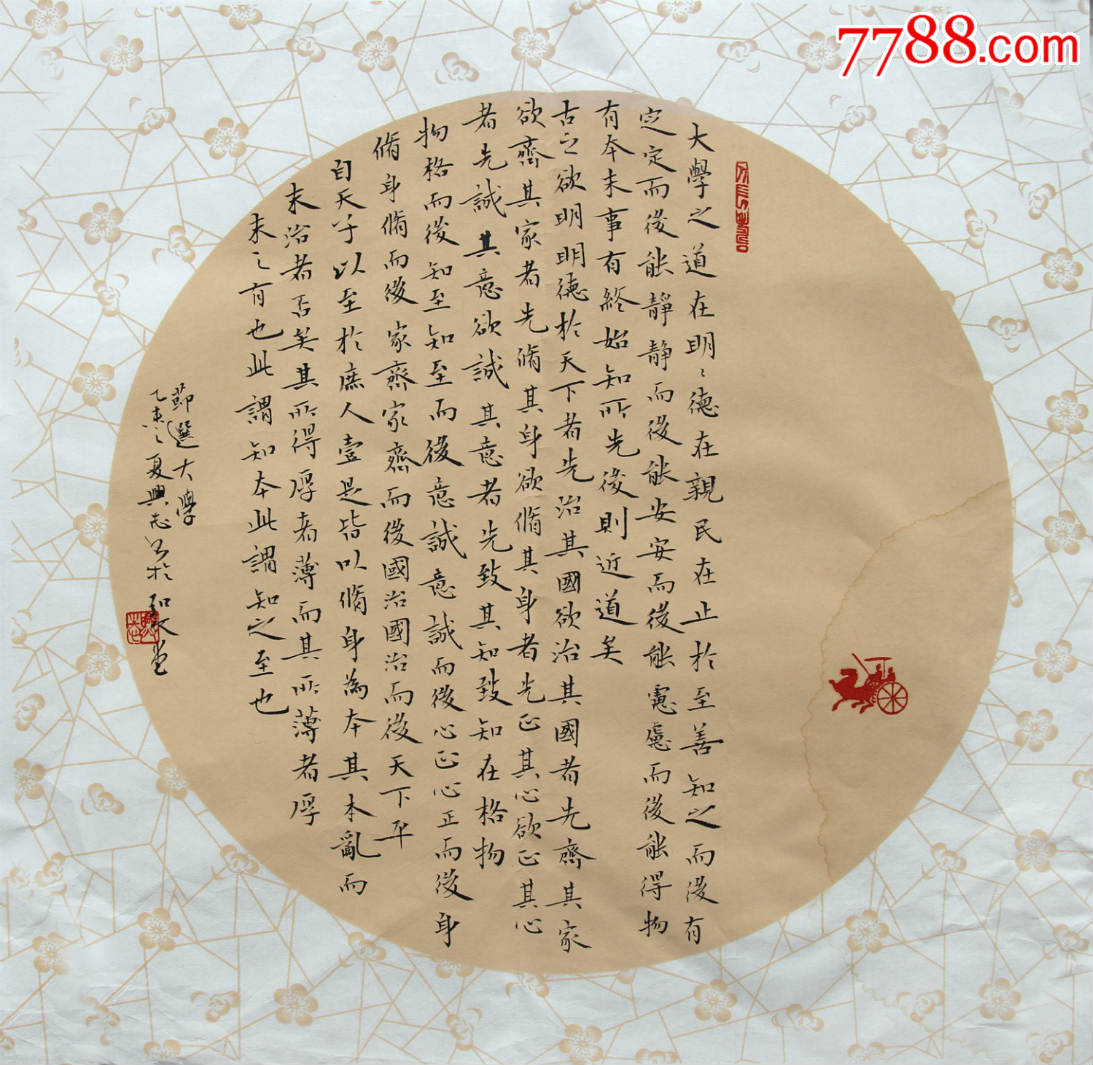 7788.com
大學之道在明〻德在親民在止於至善知之而後有
定定而後能靜靜而後能安安而後能慮慮而後能得物
有本末事有終始知所先後則近道矣
古之欲明明德於天下者先治其國欲治其國者先齊其家
欲齊其家者先脩其身欲脩其身者先正其心欲正其心
者先誠其意欲誠其意者先致其知致知在格物
物格而後知至知至而後意誠意誠而後心正心正而後身
脩身脩而後家齊家齊而後國治國治而後天下平
自天子以至於庶人壹是皆以脩身為本其本亂而
末治者否矣其所得厚者薄而其所薄者厚
未之有也此謂知本此謂知之至也
節選大學
乙未之夏興志書於